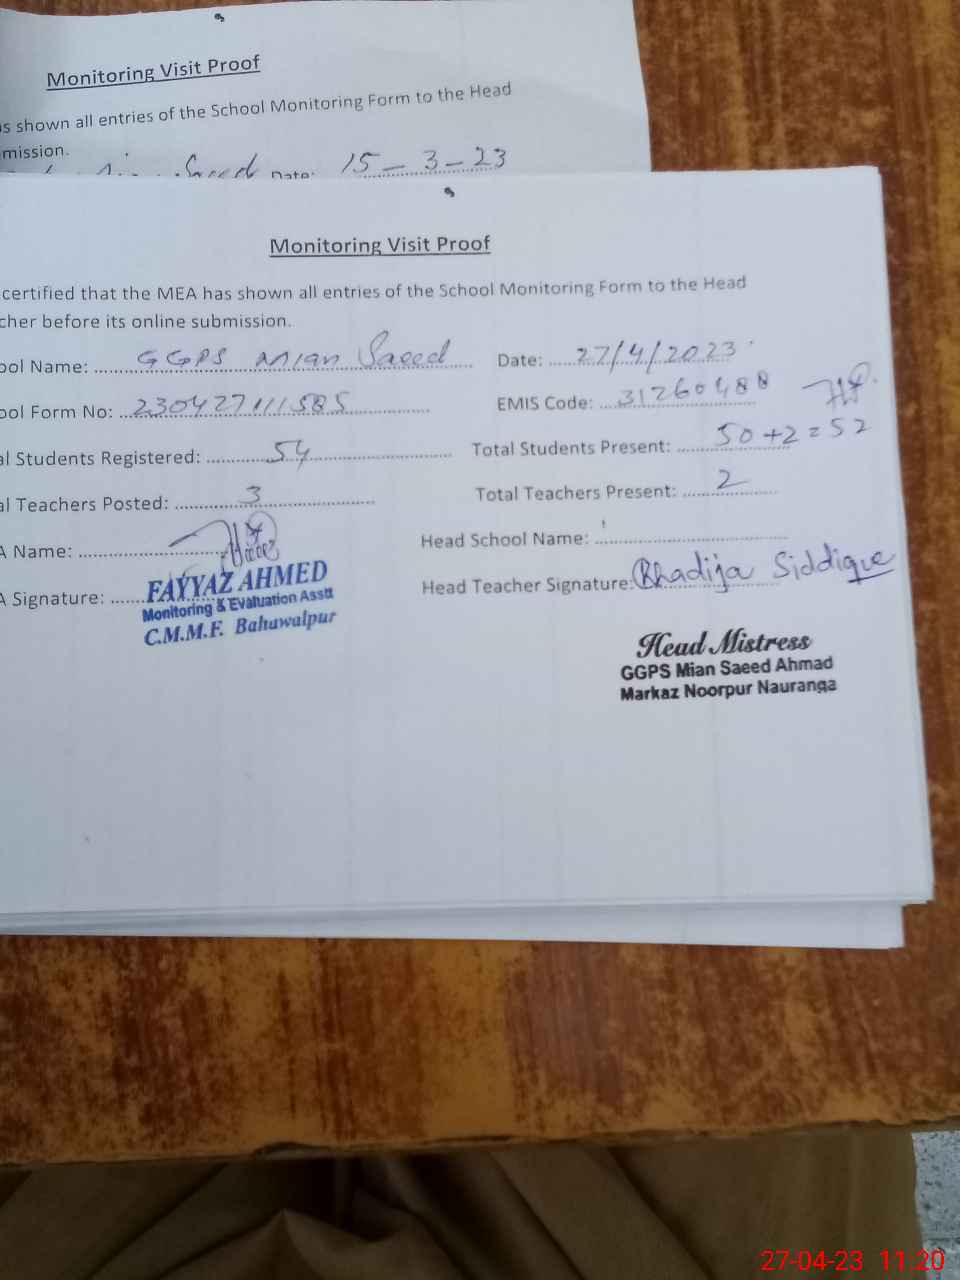 Monitoring Visit Proof
s shown all entries of the School Monitoring Form to the Head
mission.
Saeed Date: 15-3-23
Monitoring Visit Proof
certified that the MEA has shown all entries of the School Monitoring Form to the Head
cher before its online submission.
ool Name: GGPS Mian Saeed Date: 27/4/2023
ool Form No: 230427111585 EMIS Code: 31260488
al Students Registered: 54 Total Students Present: 50+2=52
al Teachers Posted: 3 Total Teachers Present: 2
A Name: Head School Name:
A Signature: Head Teacher Signature: Khadija Siddique
FAYYAZ AHMED
Monitoring & Evaluation Asstt
C.M.M.F. Bahawalpur
Head Mistress
GGPS Mian Saeed Ahmad
Markaz Noorpur Nauranga
27-04-23 11:20